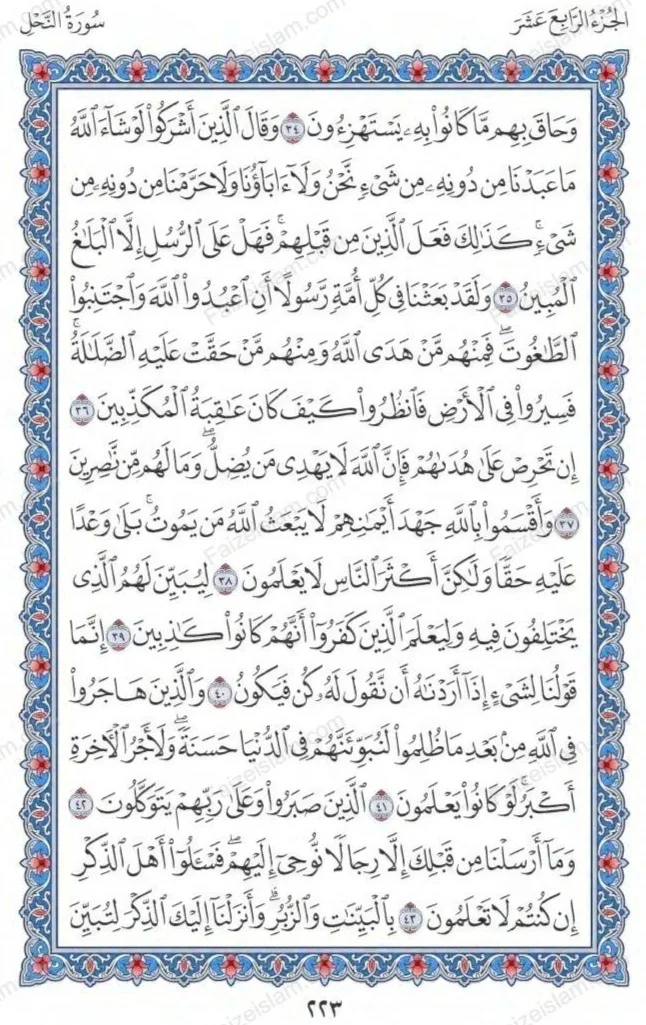 الجُزْءُ الرَّابِعَ عَشَرَ
سُورَةُ النَّحْلِ
وَحَاقَ بِهِم مَّا كَانُوا۟ بِهِۦ يَسْتَهْزِءُونَ ٣٤ وَقَالَ ٱلَّذِينَ أَشْرَكُوا۟ لَوْ شَآءَ ٱللَّهُ
مَا عَبَدْنَا مِن دُونِهِۦ مِن شَىْءٍ نَّحْنُ وَلَآ ءَابَآؤُنَا وَلَا حَرَّمْنَا مِن دُونِهِۦ مِن
شَىْءٍ ۚ كَذَٰلِكَ فَعَلَ ٱلَّذِينَ مِن قَبْلِهِمْ ۚ فَهَلْ عَلَى ٱلرُّسُلِ إِلَّا ٱلْبَلَٰغُ
ٱلْمُبِينُ ٣٥ وَلَقَدْ بَعَثْنَا فِى كُلِّ أُمَّةٍ رَّسُولًا أَنِ ٱعْبُدُوا۟ ٱللَّهَ وَٱجْتَنِبُوا۟
ٱلطَّٰغُوتَ ۖ فَمِنْهُم مَّنْ هَدَى ٱللَّهُ وَمِنْهُم مَّنْ حَقَّتْ عَلَيْهِ ٱلضَّلَٰلَةُ ۚ
فَسِيرُوا۟ فِى ٱلْأَرْضِ فَٱنظُرُوا۟ كَيْفَ كَانَ عَٰقِبَةُ ٱلْمُكَذِّبِينَ ٣٦
إِن تَحْرِصْ عَلَىٰ هُدَىٰهُمْ فَإِنَّ ٱللَّهَ لَا يَهْدِى مَن يُضِلُّ ۖ وَمَا لَهُم مِّن نَّٰصِرِينَ
٣٧ وَأَقْسَمُوا۟ بِٱللَّهِ جَهْدَ أَيْمَٰنِهِمْ ۙ لَا يَبْعَثُ ٱللَّهُ مَن يَمُوتُ ۚ بَلَىٰ وَعْدًا
عَلَيْهِ حَقًّا وَلَٰكِنَّ أَكْثَرَ ٱلنَّاسِ لَا يَعْلَمُونَ ٣٨ لِيُبَيِّنَ لَهُمُ ٱلَّذِى
يَخْتَلِفُونَ فِيهِ وَلِيَعْلَمَ ٱلَّذِينَ كَفَرُوٓا۟ أَنَّهُمْ كَانُوا۟ كَٰذِبِينَ ٣٩ إِنَّمَا
قَوْلُنَا لِشَىْءٍ إِذَآ أَرَدْنَٰهُ أَن نَّقُولَ لَهُۥ كُن فَيَكُونُ ٤٠ وَٱلَّذِينَ هَاجَرُوا۟
فِى ٱللَّهِ مِنۢ بَعْدِ مَا ظُلِمُوا۟ لَنُبَوِّئَنَّهُمْ فِى ٱلدُّنْيَا حَسَنَةً ۖ وَلَأَجْرُ ٱلْءَاخِرَةِ
أَكْبَرُ ۚ لَوْ كَانُوا۟ يَعْلَمُونَ ٤١ ٱلَّذِينَ صَبَرُوا۟ وَعَلَىٰ رَبِّهِمْ يَتَوَكَّلُونَ ٤٢
وَمَآ أَرْسَلْنَا مِن قَبْلِكَ إِلَّا رِجَالًا نُّوحِىٓ إِلَيْهِمْ ۖ فَسْـَٔلُوٓا۟ أَهْلَ ٱلذِّكْرِ
إِن كُنتُمْ لَا تَعْلَمُونَ ٤٣ بِٱلْبَيِّنَٰتِ وَٱلزُّبُرِ ۗ وَأَنزَلْنَآ إِلَيْكَ ٱلذِّكْرَ لِتُبَيِّنَ
٢٢٣
Faizeislam.com